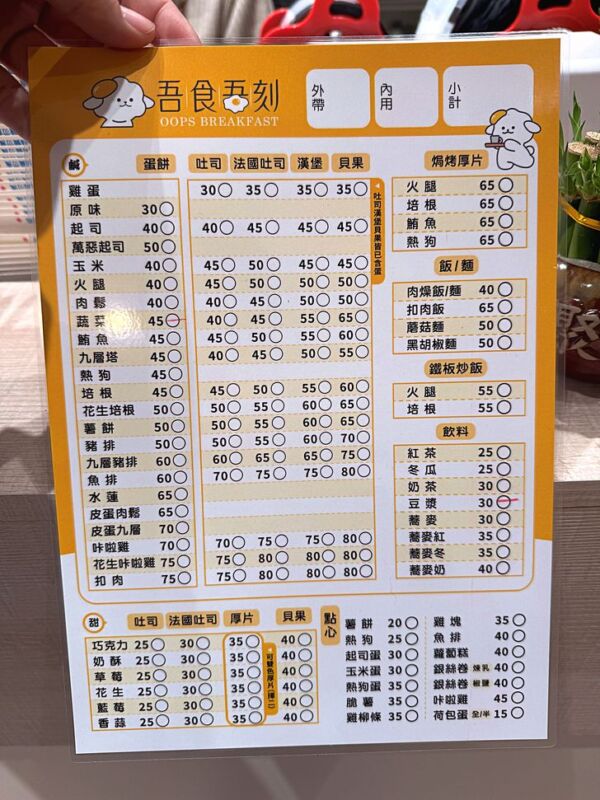 吾食吾刻
OOPS BREAKFAST
外帶
內用
小計
鹹 蛋餅 吐司 法國吐司 漢堡 貝果
雞蛋 30 35 35 35
原味 30
起司 40 40 45 45 45
萬惡起司 50
玉米 40 45 50 45 45
火腿 40 45 50 50 50
肉鬆 40 45 50 50 50
蔬菜 45 40 45 55 65
鮪魚 45 45 50 55 60
九層塔 45 40 45 50 55
熱狗 45
培根 45 45 50 55 60
花生培根 50 50 55 60 65
薯餅 50 50 55 60 65
豬排 50 50 55 60 70
九層豬排 60 60 65 65 75
魚排 60 70 75 75 80
水蓮 65
皮蛋肉鬆 65
皮蛋九層 70
咔啦雞 70 70 75 75 80
花生咔啦雞 75 75 80 80 80
扣肉 75 75 80 80 80
吐司漢堡貝果皆已含蛋
焗烤厚片
火腿 65
培根 65
鮪魚 65
熱狗 65
飯/麵
肉燥飯/麵 40
扣肉飯 65
蘑菇麵 50
黑胡椒麵 50
鐵板炒飯
火腿 55
培根 55
飲料
紅茶 25
冬瓜 25
奶茶 30
豆漿 30
蕎麥 30
蕎麥紅 35
蕎麥冬 35
蕎麥奶 40
甜 吐司 法國吐司 厚片 貝果
巧克力 25 30 35 40
奶酥 25 30 35 40
草莓 25 30 35 40
花生 25 30 35 40
藍莓 25 30 35 40
香蒜 25 30 35 40
可雙色厚片(擇二)
點心
薯餅 20
熱狗 25
起司蛋 30
玉米蛋 30
熱狗蛋 35
脆薯 35
雞柳條 35
雞塊 35
魚排 40
蘿蔔糕 40
銀絲卷 煉乳 40
銀絲卷 椒鹽 40
咔啦雞 45
荷包蛋 全/半 15